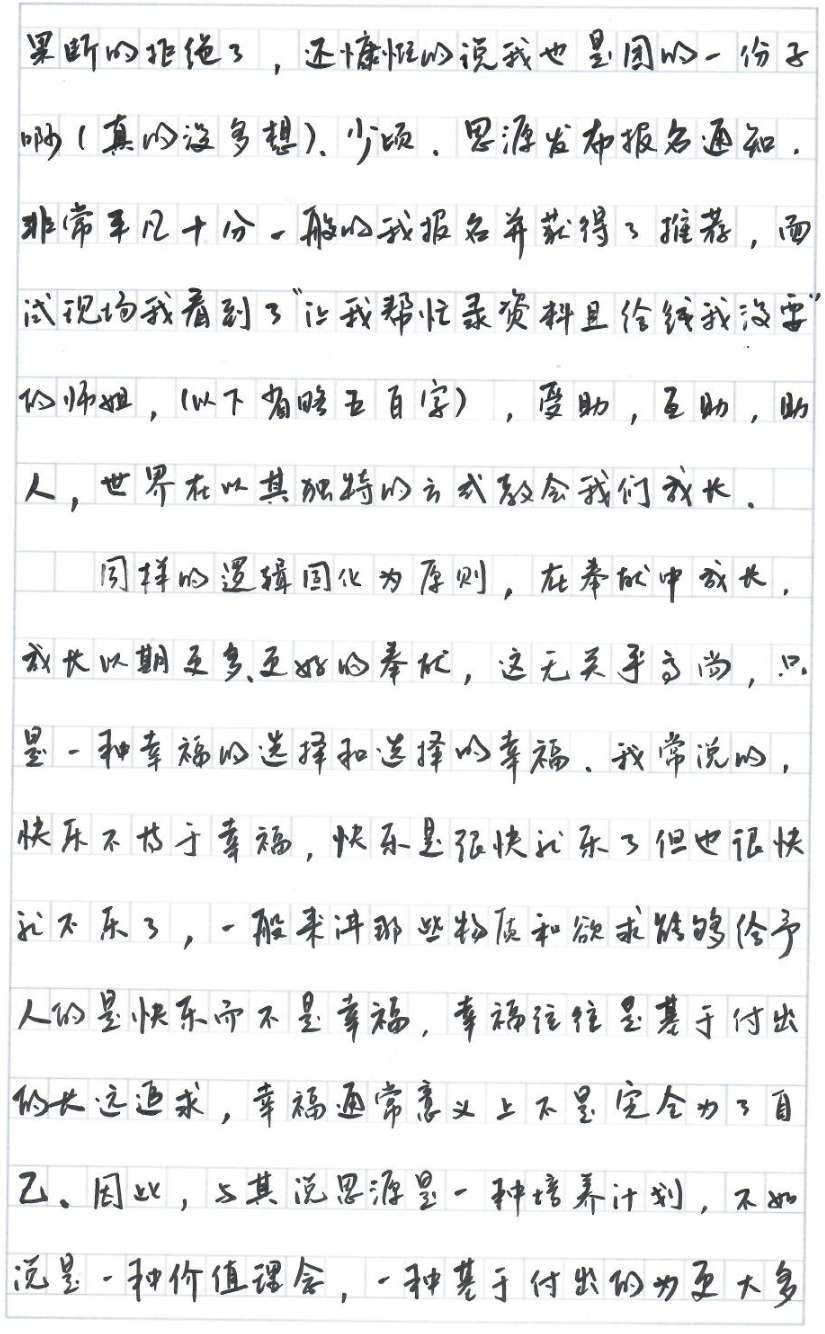 果断的拒绝了，还慷慨的说我也是团的一份子
啊(真的没多想)、少顷．思源发布报名通知．
非常平凡十分一般的我报名并获得了推荐，面
试现场我看到了"让我帮忙录资料且给钱我没要"
的师姐，(以下省略五百字)，受助，互助，助
人，世界在以其独特的方式教会我们成长．
同样的逻辑固化为原则，在奉献中成长．
成长以期更多、更好的奉献，这无关乎高尚，只
是一种幸福的选择和选择的幸福、我常说的，
快乐不等于幸福，快乐是很快就乐了但也很快
就不乐了，一般来讲那些物质和欲求能够给予
人的是快乐而不是幸福，幸福往往是基于付出
的长远追求，幸福通常意义上不是完全为了自
己、因此，与其说思源是一种培养计划，不如
说是一种价值理念，一种基于付出的为更大多